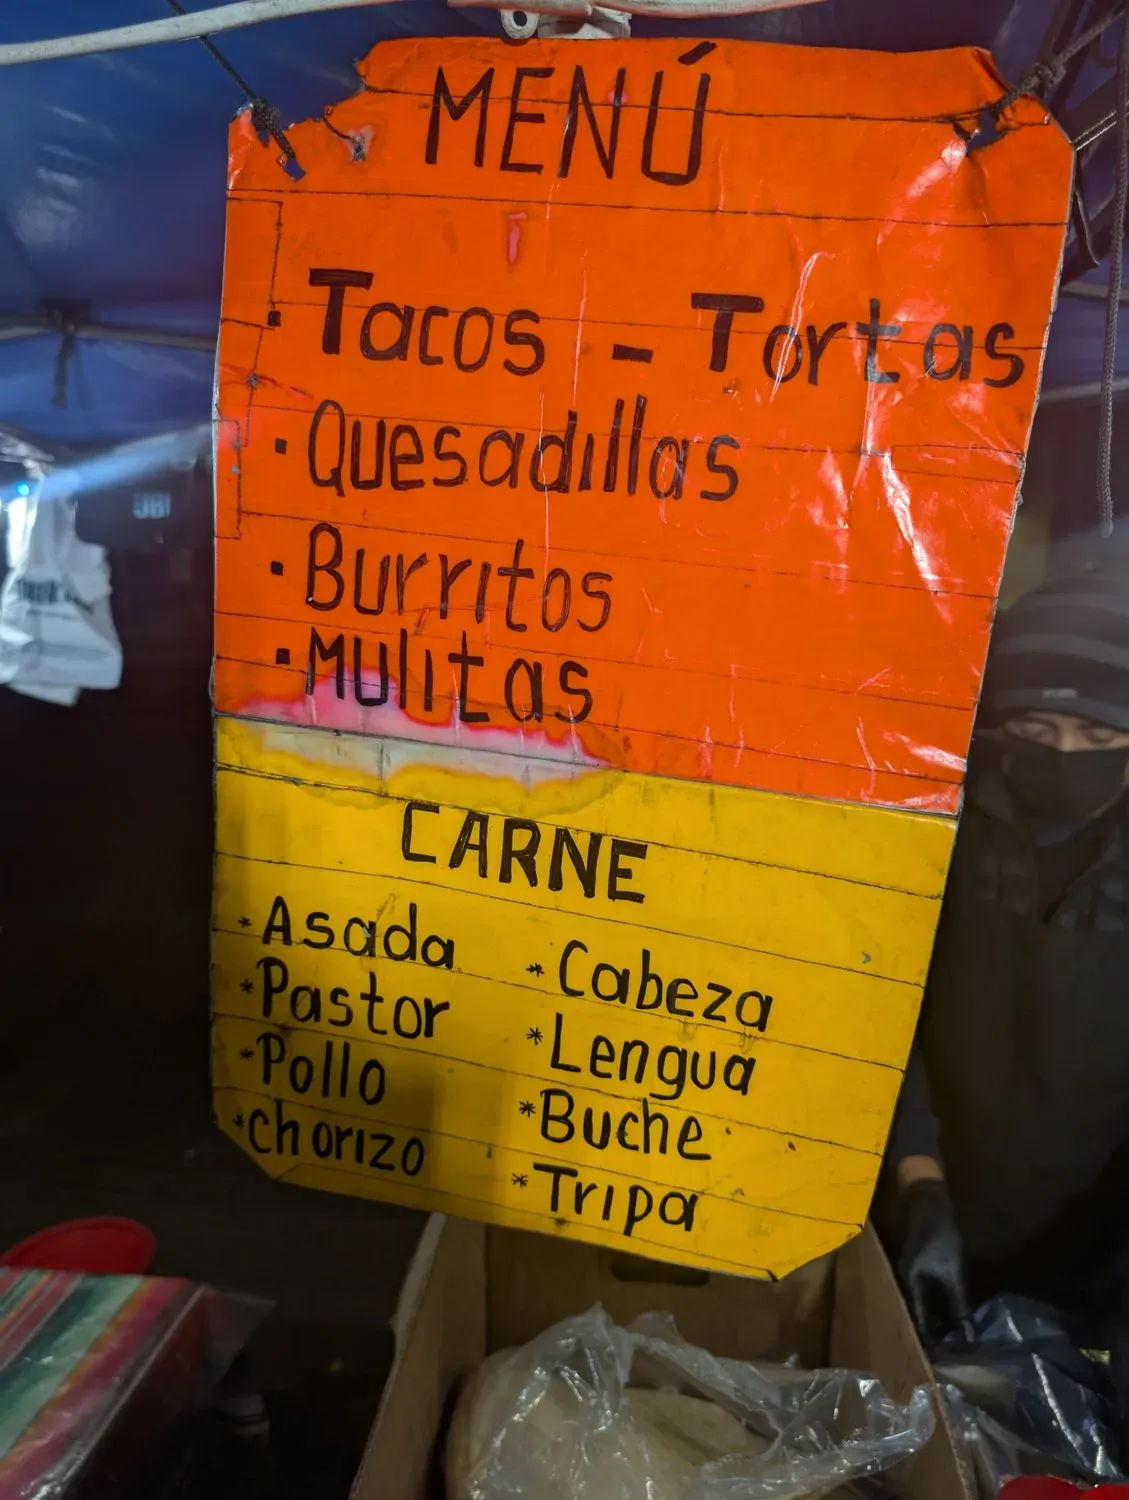 MENÚ
· Tacos - Tortas
· Quesadillas
· Burritos
· Mulitas
CARNE
* Asada
* Pastor
* Pollo
* chorizo
* Cabeza
* Lengua
* Buche
* Tripa